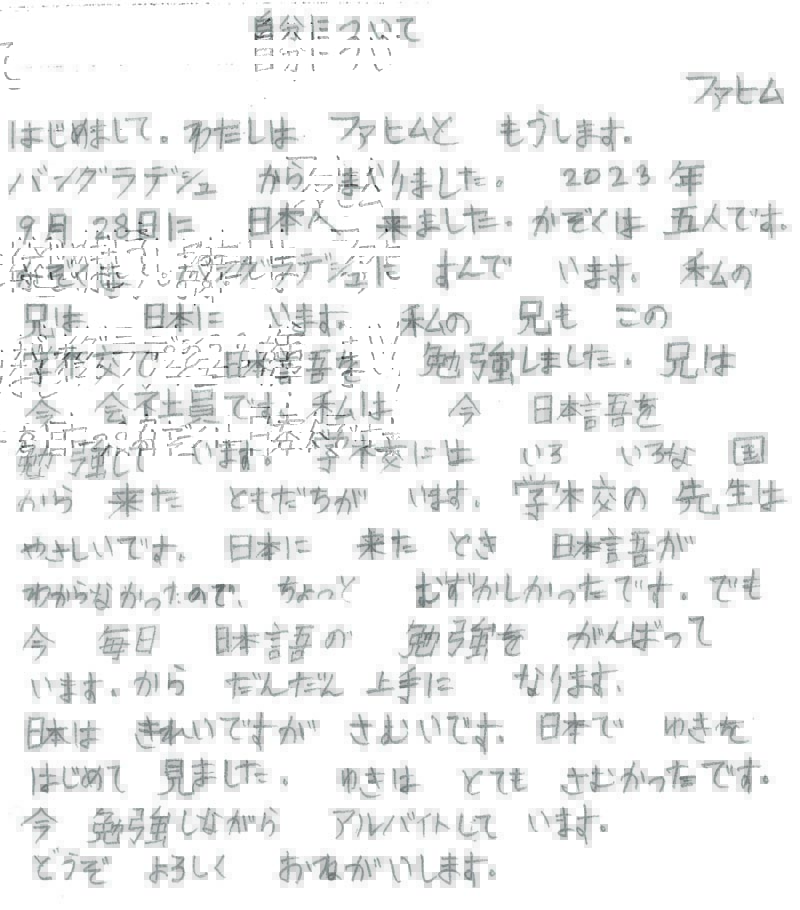 自分について
ファヒム
はじめまして。わたしは ファヒムと もうします。
バングラデシュ からまいりました。 2023年
9月28日に 日本へ 来ました。かぞくは 五人です。
すんで います。私の
兄は 日本に います。 私の 兄も この
学校で 日本語を 勉強しました。兄は
今 会社員です。私は 今 日本語を
勉強して います。学校には いろ いろな 国
から 来た ともだちが います。学校の 先生は
やさしいです。 日本に 来た とき 日本語が
わからなかったので、ちょっと むずかしかったです。でも
今 毎日 日本語の 勉強を がんばって
います。から だんだん 上手に なります。
日本は きれいですが さむいです。日本で ゆきを
はじめて 見ました。 ゆきは とても さむかったです。
今 勉強しながら アルバイトして います。
どうぞ よろしく おねがいします。